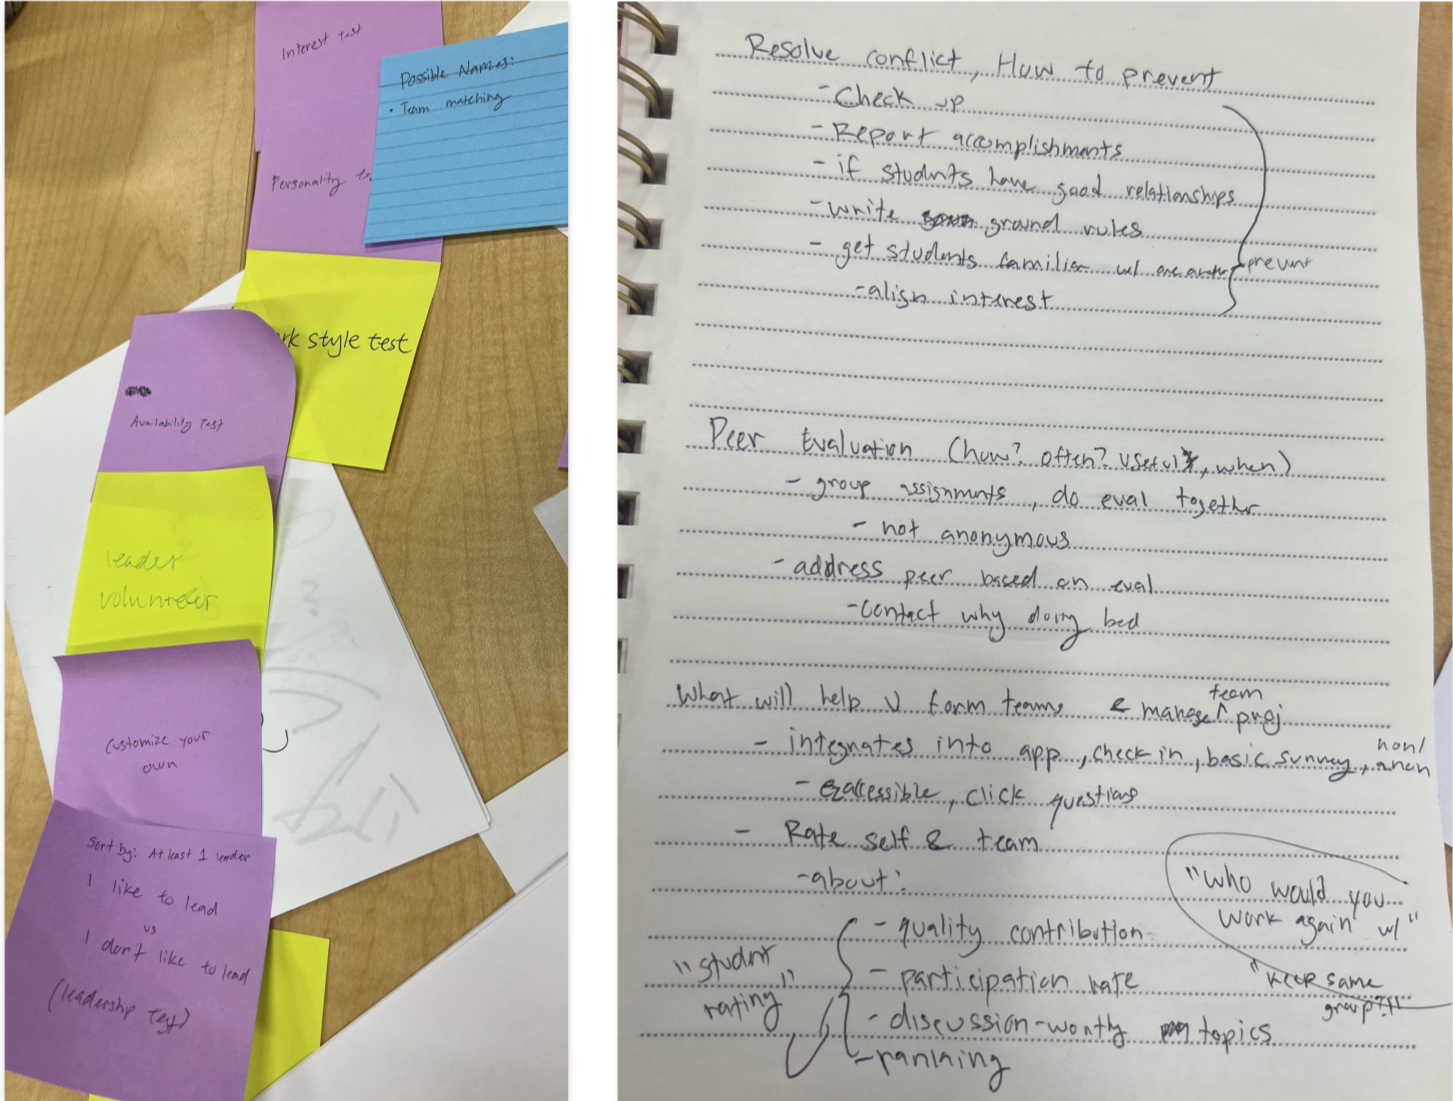 Interest test
Possible Names:
• Team matching
Personality te
rk style test
Availability Test
leader
volunteer
Customize your
own
Sort by: At least 1 leader
I like to lead
vs
I don't like to lead
(leadership test)
Resolve conflict, How to prevent
- Check up
- Report accomplishments
- if students have good relationships
- write ground rules
- get students familiar w/ one another
prevent
- align interest
Peer Evaluation (how? often? useful?, when)
- group assignments, do eval together
- not anonymous
- address peer based on eval
- contact why doing bad
What will help U form teams & manage team proj
- integrates into app, check in, basic survey, non/anon
- accessible, click questions
- Rate self & team
- about:
- quality contribution
- participation rate
- discussion-worthy topics
"student
rating"
"who would you
work again w/"
"keep same
group?!!